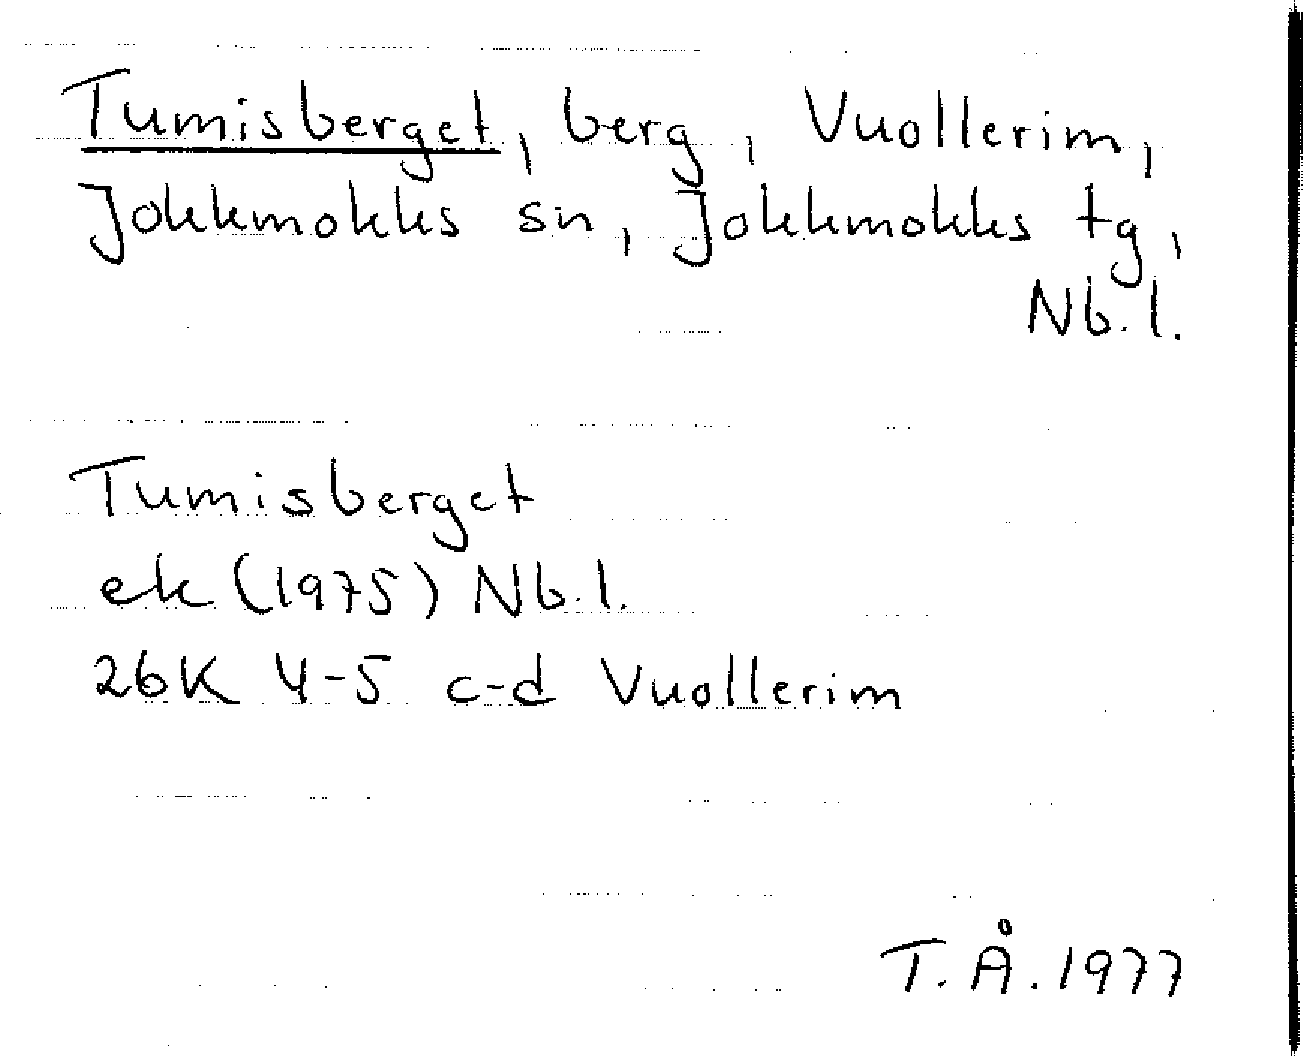 Tumisberget, berg, Vuollerim,
Jokkmokks sn, Jokkmokks tg,
Nb.l.
Tumisberget
ek (1975) Nb.l.
26K 4-5 c-d Vuollerim
T.Å.1977